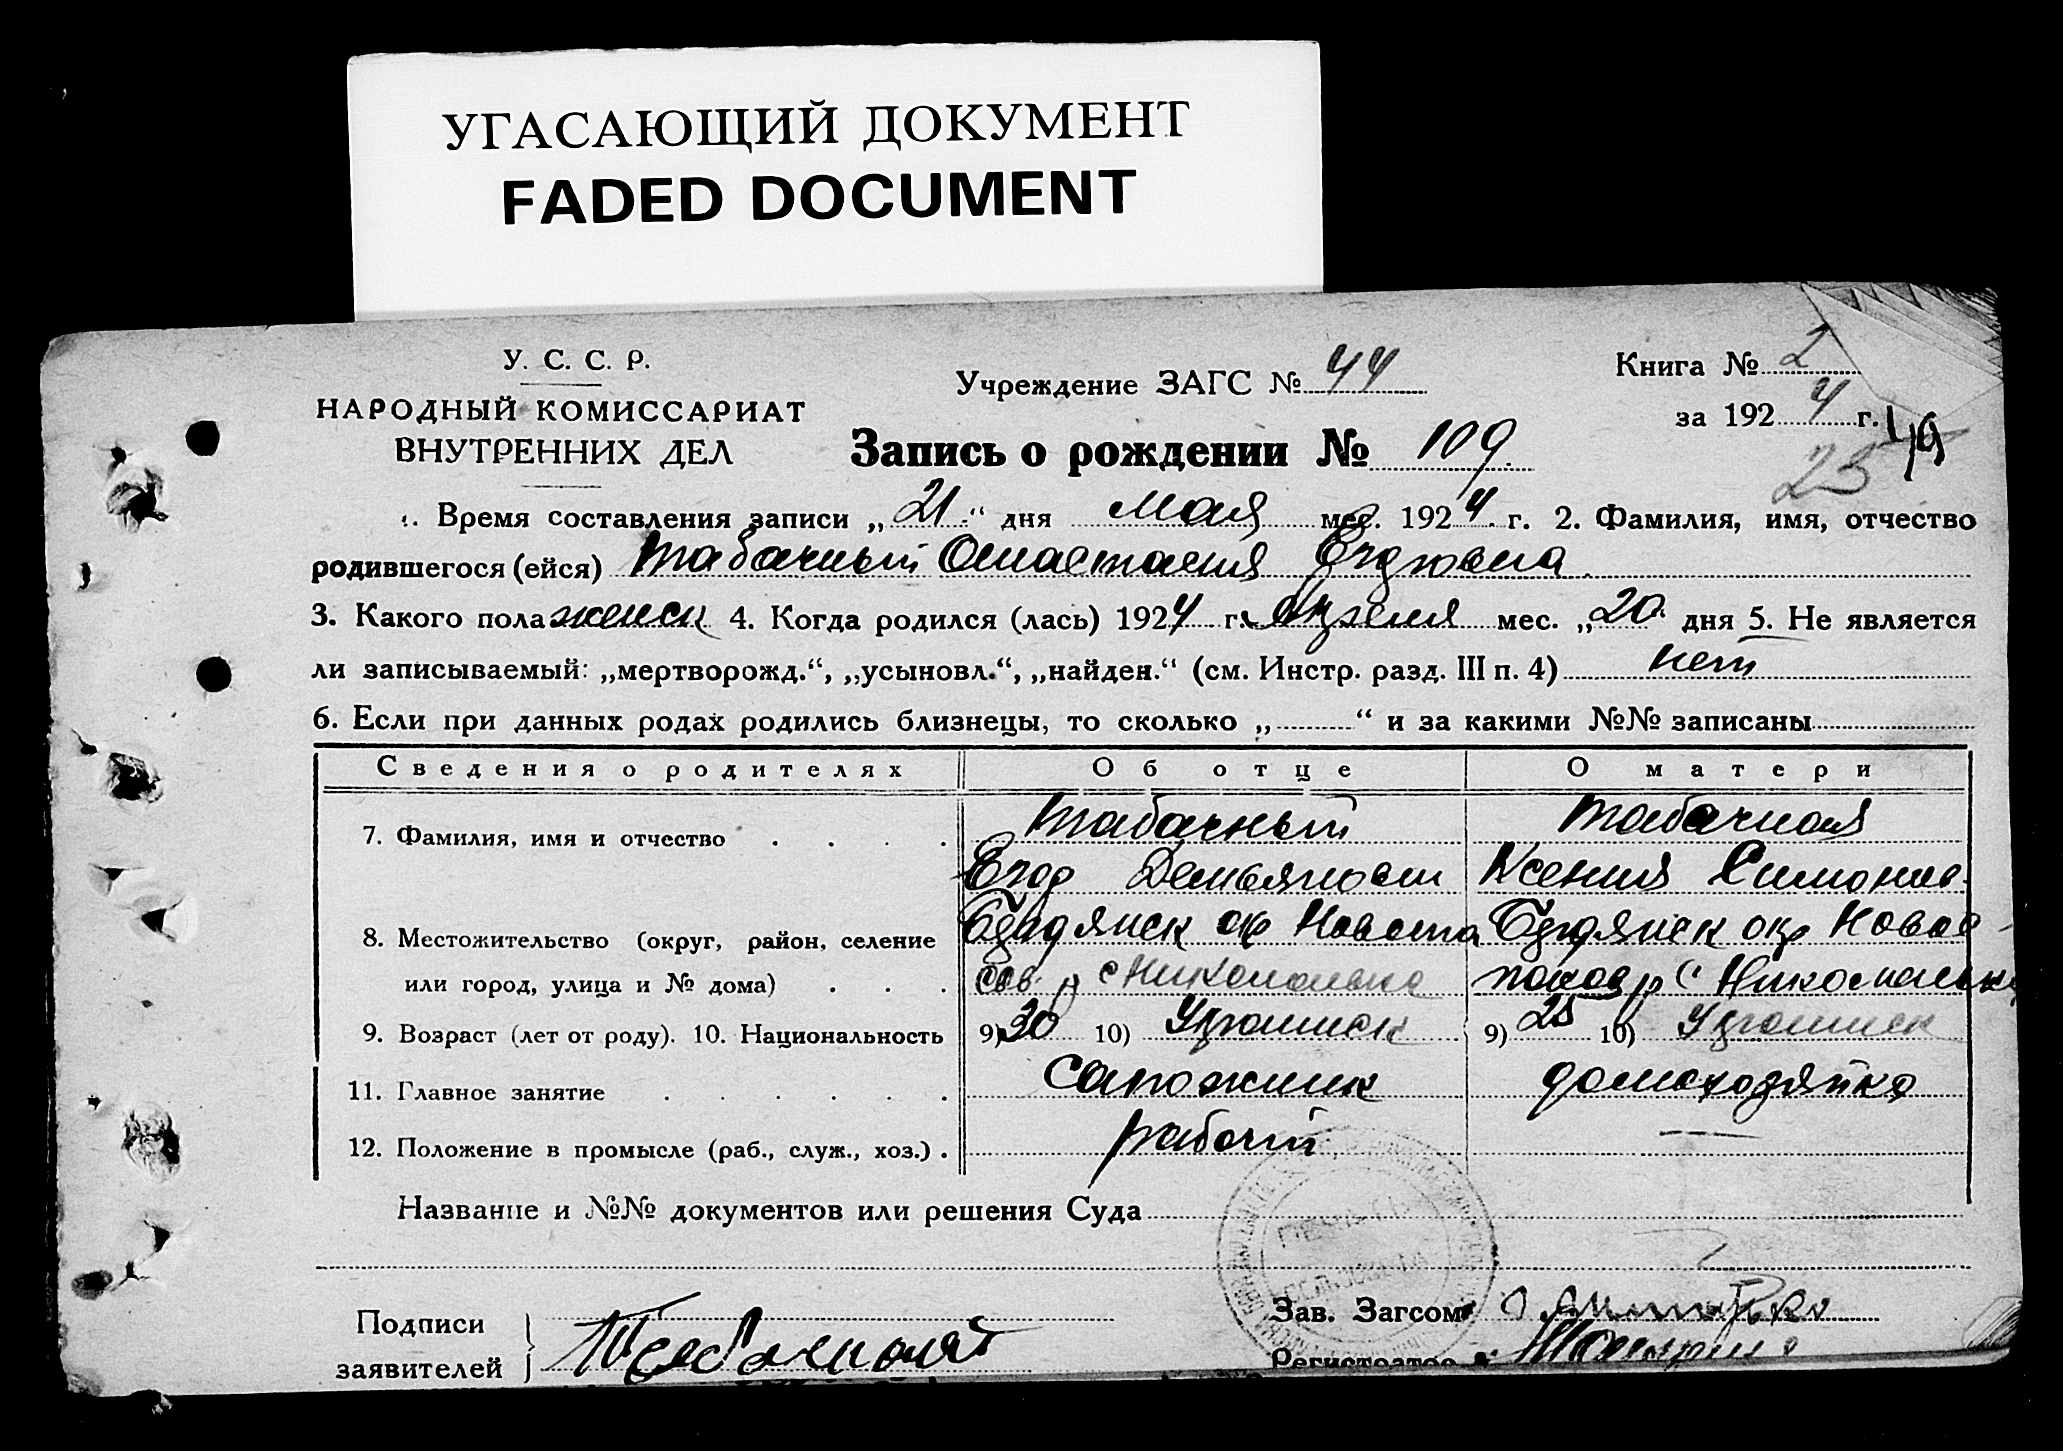 УГАСАЮЩИЙ ДОКУМЕНТ
FADED DOCUMENT
У. С. С. Р.
НАРОДНЫЙ КОМИССАРИАТ
ВНУТРЕННИХ ДЕЛ
Учреждение ЗАГС № 44
Книга № 2
за 1924 г.
25
Запись о рождении № 109.
1. Время составления записи „21“ дня Мая мес. 1924 г. 2. Фамилия, имя, отчество
родившегося (ейся) Табачный Анастасия
3. Какого пола женск 4. Когда родился (лась) 1924 г. Апреля мес. „20“ дня 5. Не является
ли записываемый: „мертворожд.“, „усыновл.“, „найден.“ (см. Инстр. разд. III п. 4) нет
6. Если при данных родах родились близнецы, то сколько „ “ и за какими №№ записаны
Сведения о родителях Об отце О матери
7. Фамилия, имя и отчество Табачный Табачная
Егор Демьянович Ксения Симонов
8. Местожительство (округ, район, селение Бердянск окр Новоспа Бердянск окр Новос
или город, улица и № дома) сов р с Николаевка пасов р с Николаевка
9. Возраст (лет от роду). 10. Национальность 9) 30 10) Украинск 9) 25 10) Украинск
11. Главное занятие Сапожник домохозяйка
12. Положение в промысле (раб., служ., хоз.) рабочий —
Название и №№ документов или решения Суда
Подписи
заявителей Табачный
Зав. Загсом
Регистратор